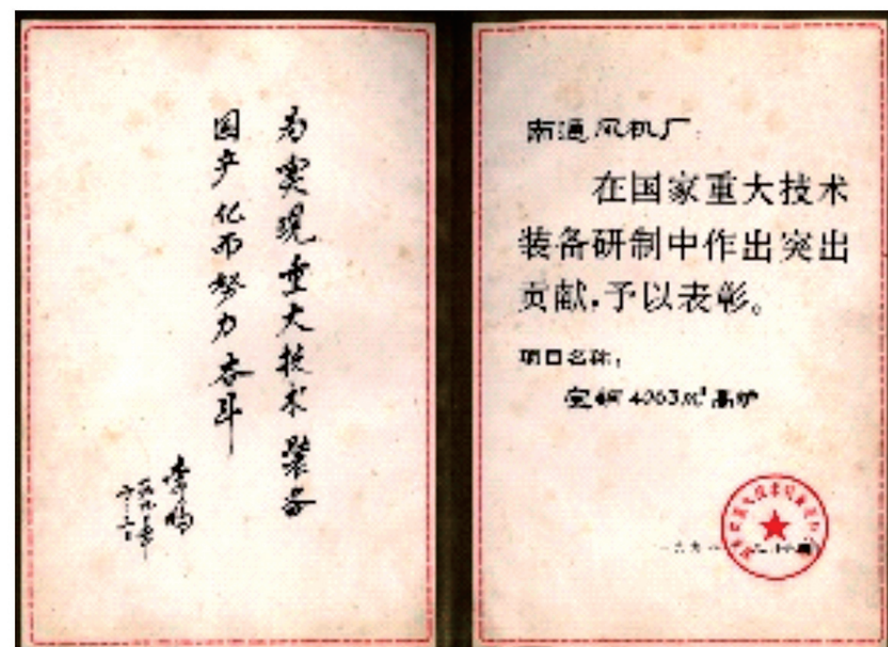 为实现重大技术装备
国产化而努力奋斗
李鹏
南通风机厂:
在国家重大技术
装备研制中作出突出
贡献,予以表彰。
项目名称:
宝钢4063m³高炉